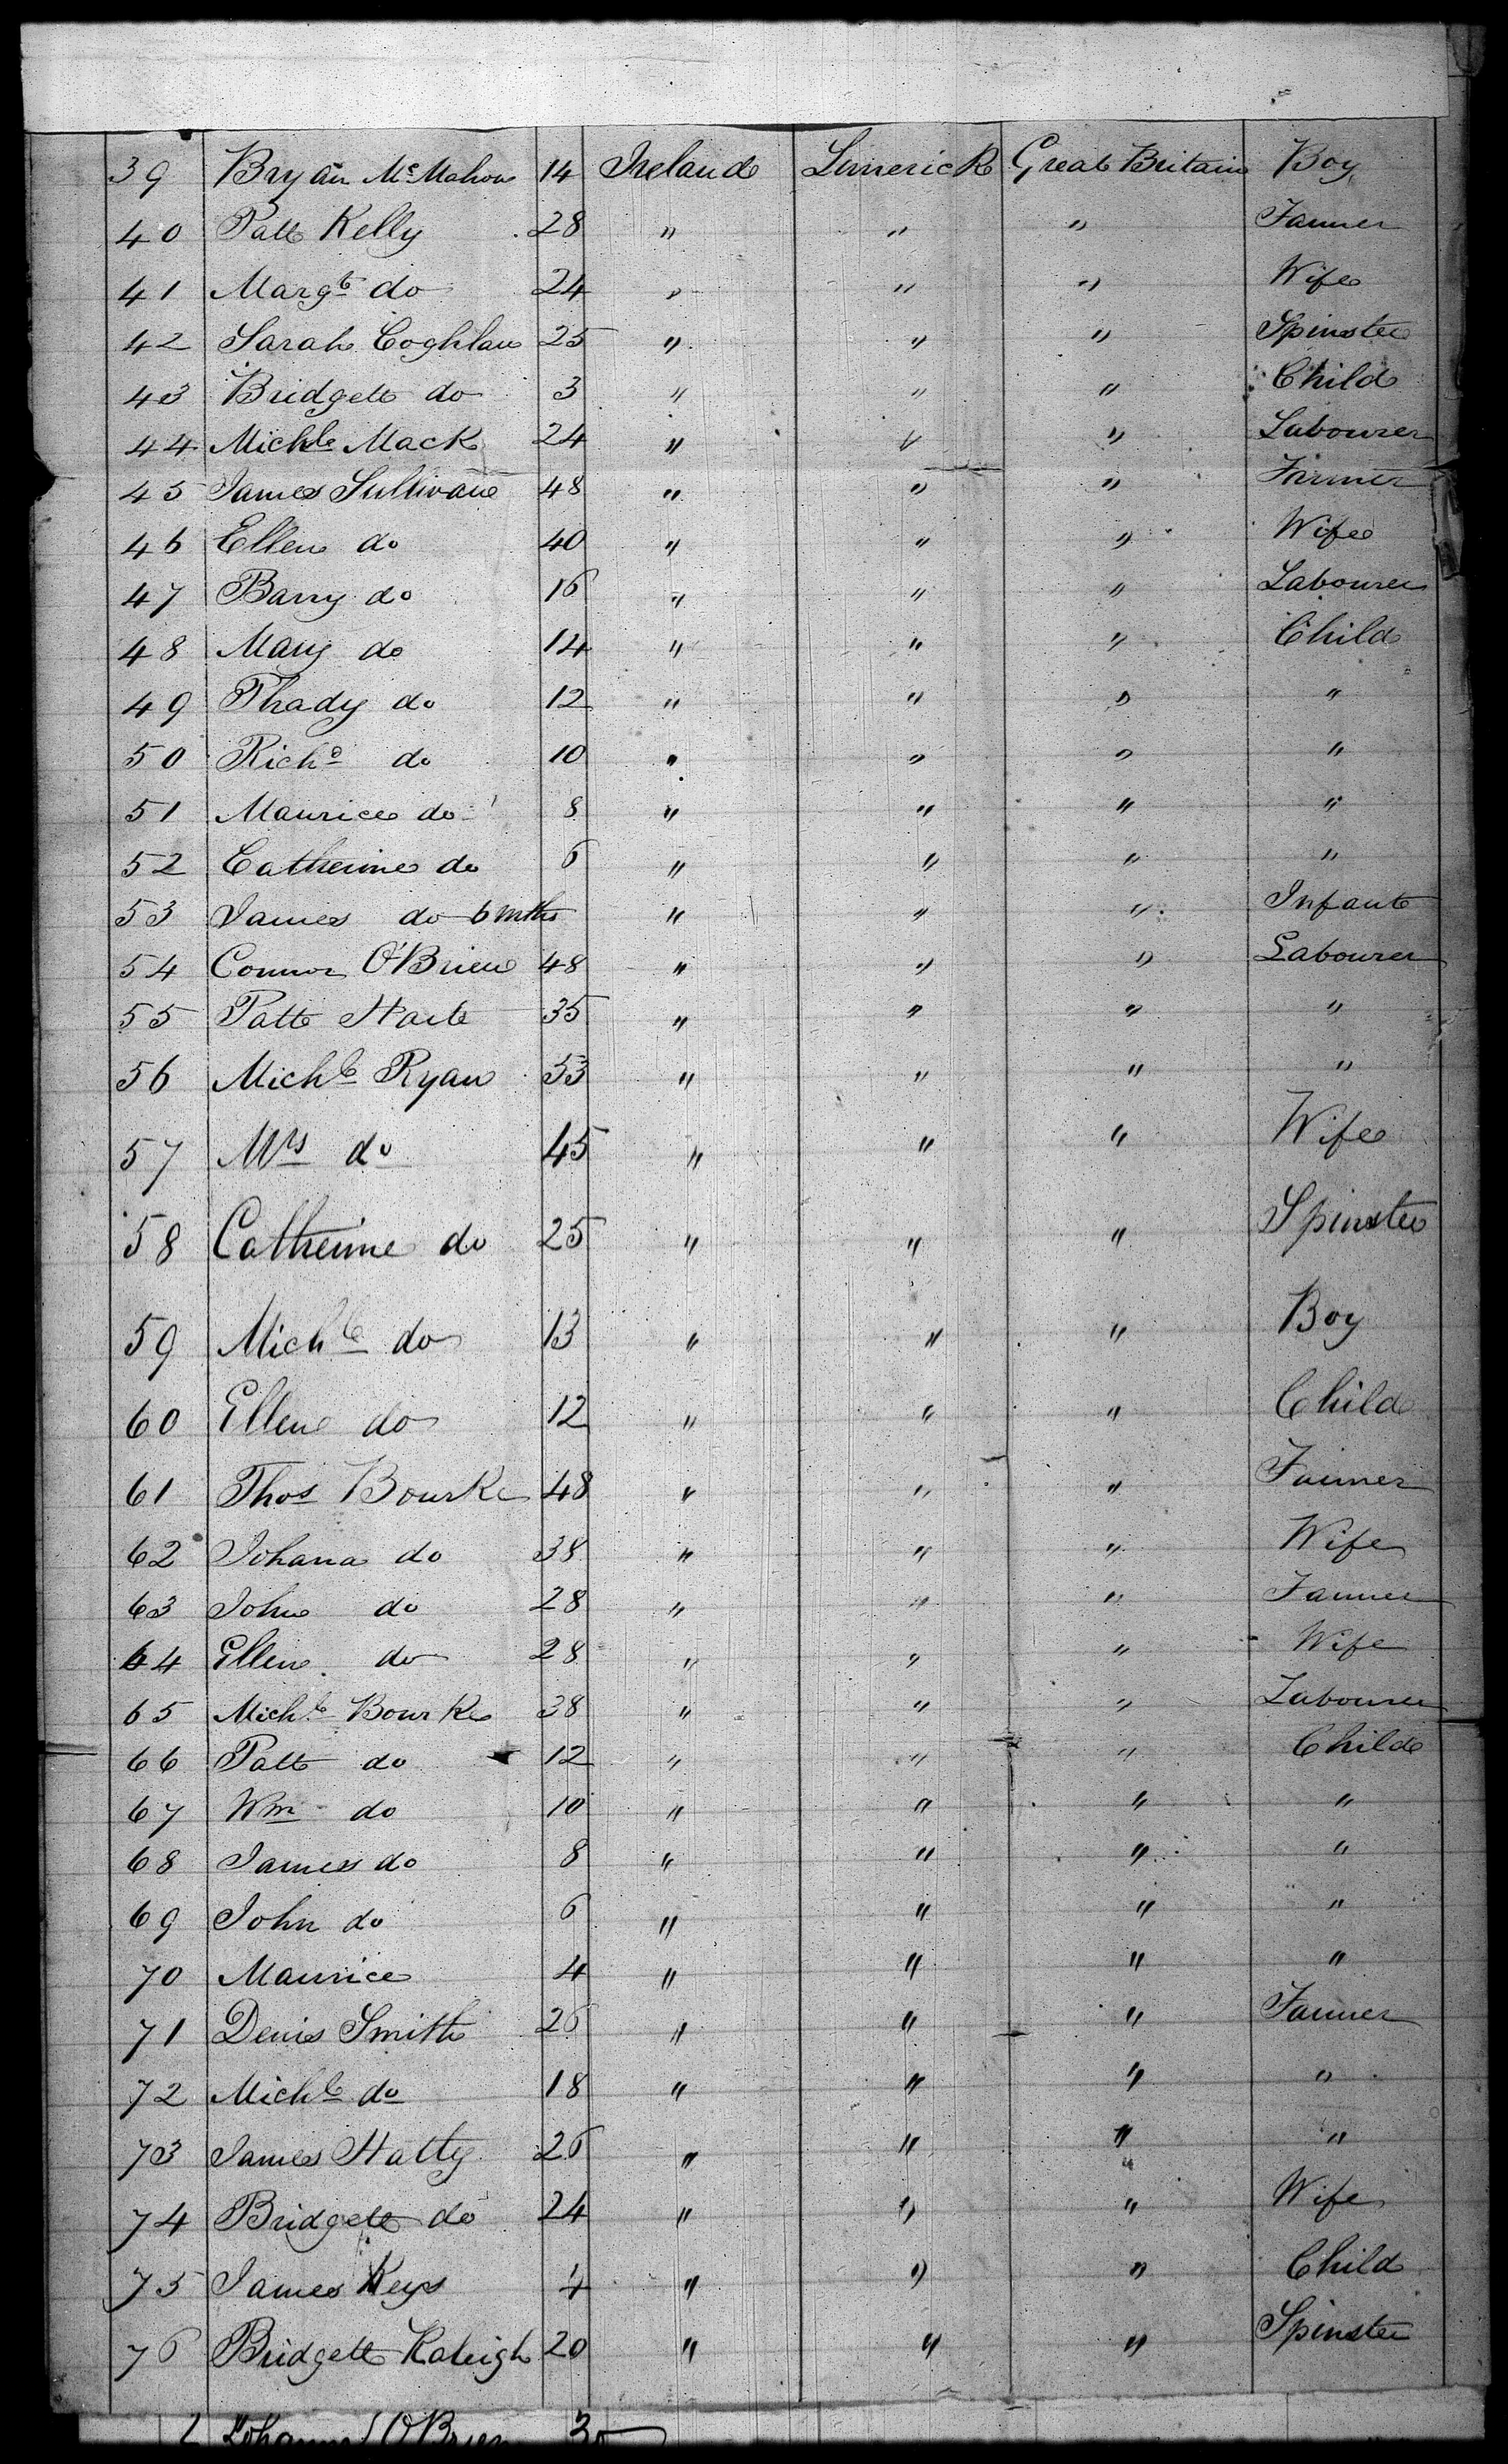 39 Bryan McMahon 14 Ireland Limerick Great Britain Boy
40 Patt Kelly 28 " " " Farmer
41 Margt do 24 " " " Wife
42 Sarah Coghlan 25 " " " Spinster
43 Bridgett do 3 " " " Child
44 Michl Mack 24 " " " Labourer
45 James Sullivane 48 " " " Farmer
46 Ellen do 40 " " " Wife
47 Barry do 16 " " " Labourer
48 Mary do 14 " " " Child
49 Thady do 12 " " " "
50 Richd do 10 " " " "
51 Maurice do 8 " " " "
52 Catherine do 6 " " " "
53 James do 6 mths " " " Infant
54 Connor O'Brien 48 " " " Labourer
55 Patt 35 " " " "
56 Michl Ryan 53 " " " "
57 Mrs do 45 " " " Wife
58 Catherine do 25 " " " Spinster
59 Michl do 13 " " " Boy
60 Ellen do 12 " " " Child
61 Thos Bourke 48 " " " Farmer
62 Johana do 38 " " " Wife
63 John do 28 " " " Farmer
64 Ellen do 28 " " " Wife
65 Michl Bourke 38 " " " Labourer
66 Patt do 12 " " " Child
67 Wm do 10 " " " "
68 James do 8 " " " "
69 John do 6 " " " "
70 Maurice 4 " " " "
71 Denis Smith 26 " " " Farmer
72 Michl do 18 " " " "
73 James Hatty 26 " " " "
74 Bridgett do 24 " " " Wife
75 James Keys 4 " " " Child
76 Bridgett Raleigh 20 " " " Spinster
O'Brien